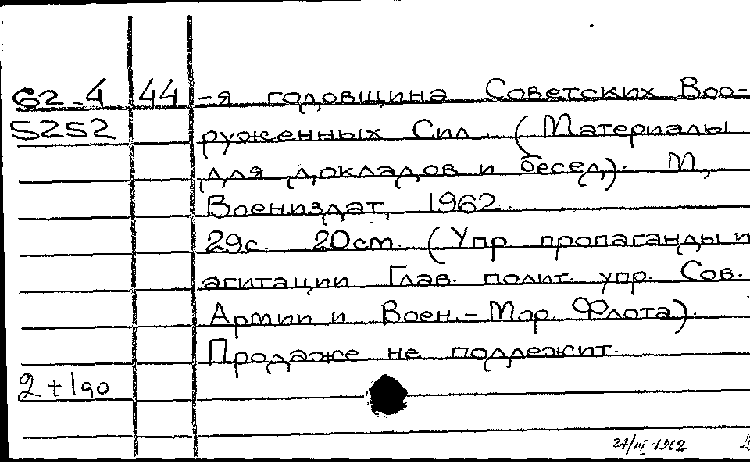 62-4 44 -я годовщина Советских Воо-
5252 руженных Сил. (Материалы
для докладов и бесед). М.,
Воениздат, 1962.
29с. 20cm. (Упр. пропаганды и
агитации Глав. полит. упр. Сов.
Армии и Воен.-Мор. Флота).
Продаже не подлежит.
2+1до